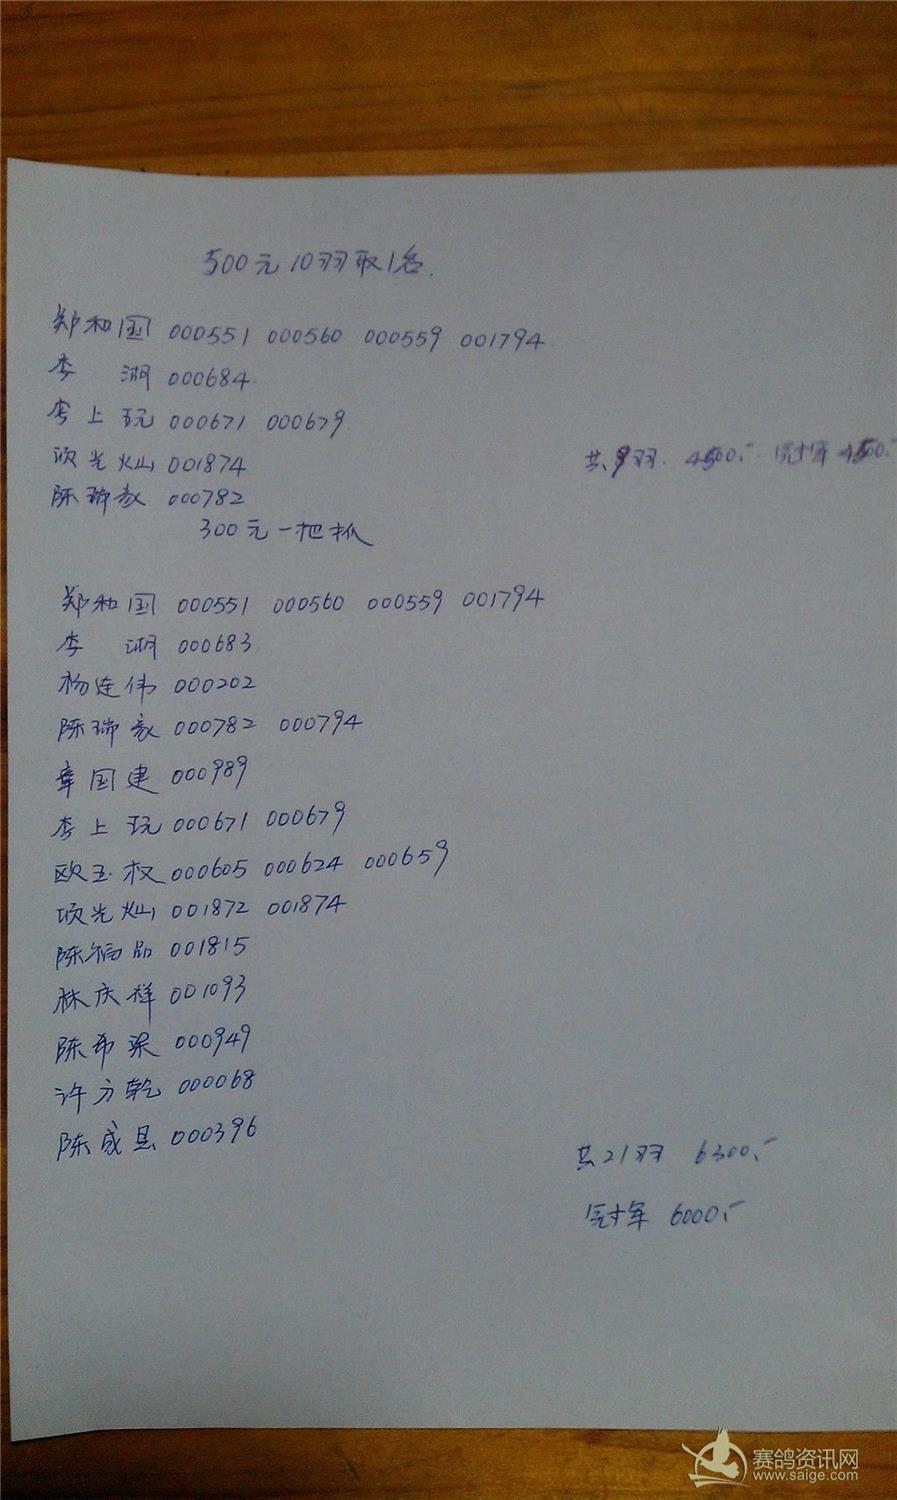 500元10羽取1名.
郑和国 000551 000560 000559 001794
李 湖 000684
李上玩 000671 000679
项光灿 001874
共9羽. 4500.- 冠军 4500.-
陈瑞敖 000782
300元一把抓
郑和国 000551 000560 000559 001794
李 湖 000683
杨连伟 000202
陈瑞敖 000782 000794
章国建 000989
李上玩 000671 000679
欧玉权 000605 000624 000659
项光灿 001872 001874
陈福品 001815
林庆祥 001093
陈希梁 000949
许方乾 000068
陈成昙 000396
共21羽 6300.-
冠军 6000.-
赛鸽资讯网
www.saige.com